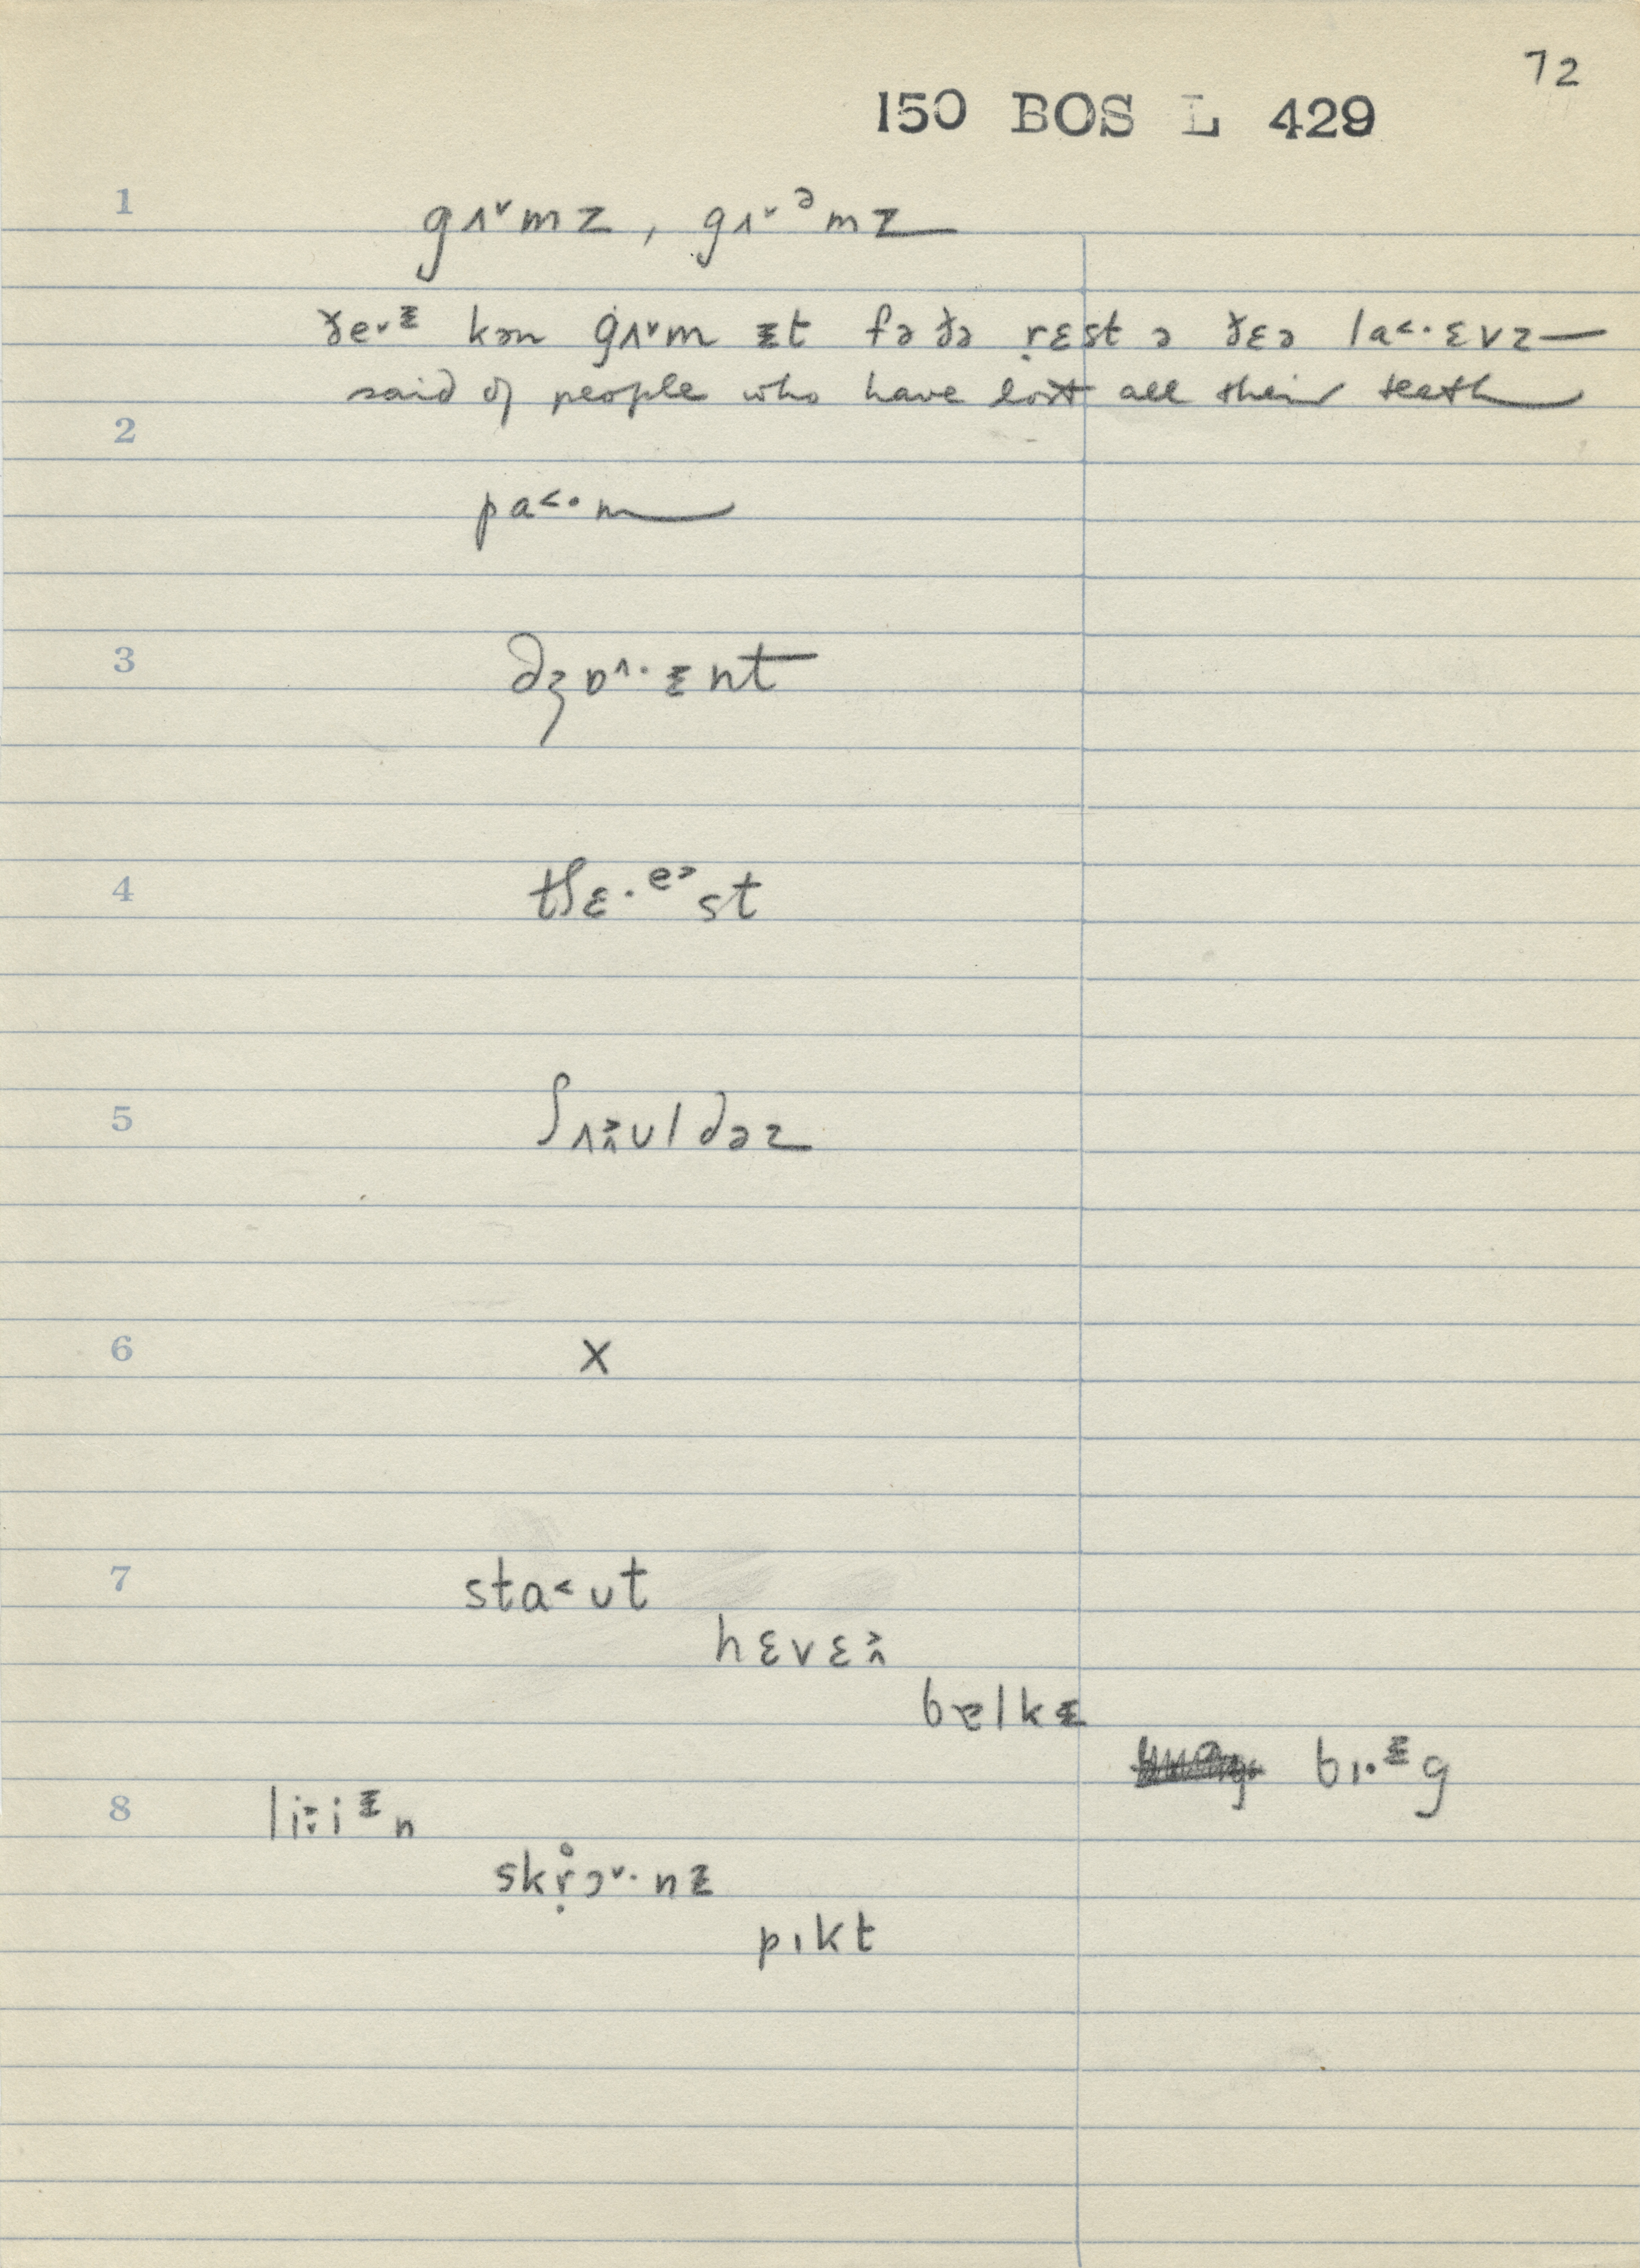 72
150 BOS L 429
1 gʌ˅mz, gʌ˅ᵊmz
ðe˅ᵻ kən gʌ˅m ᵻt fə ðə ṛɛst ə ðɛə la˂·ɛvz
said of people who have lost all their teeth
2
pa˂·m
3 dʒɒ˄·ᵻnt
4 tʃɛ·ᵉ˃st
5 ʃʌ˔˃ʊldəz
6 x
7 sta˂ʊt
hɛvɛ˔˃
bɐlkᵻ
bɪ·ᵻg
8 li˕˃iᵻn
skṛ̊ɔ˅·nᵻ
pɪkt